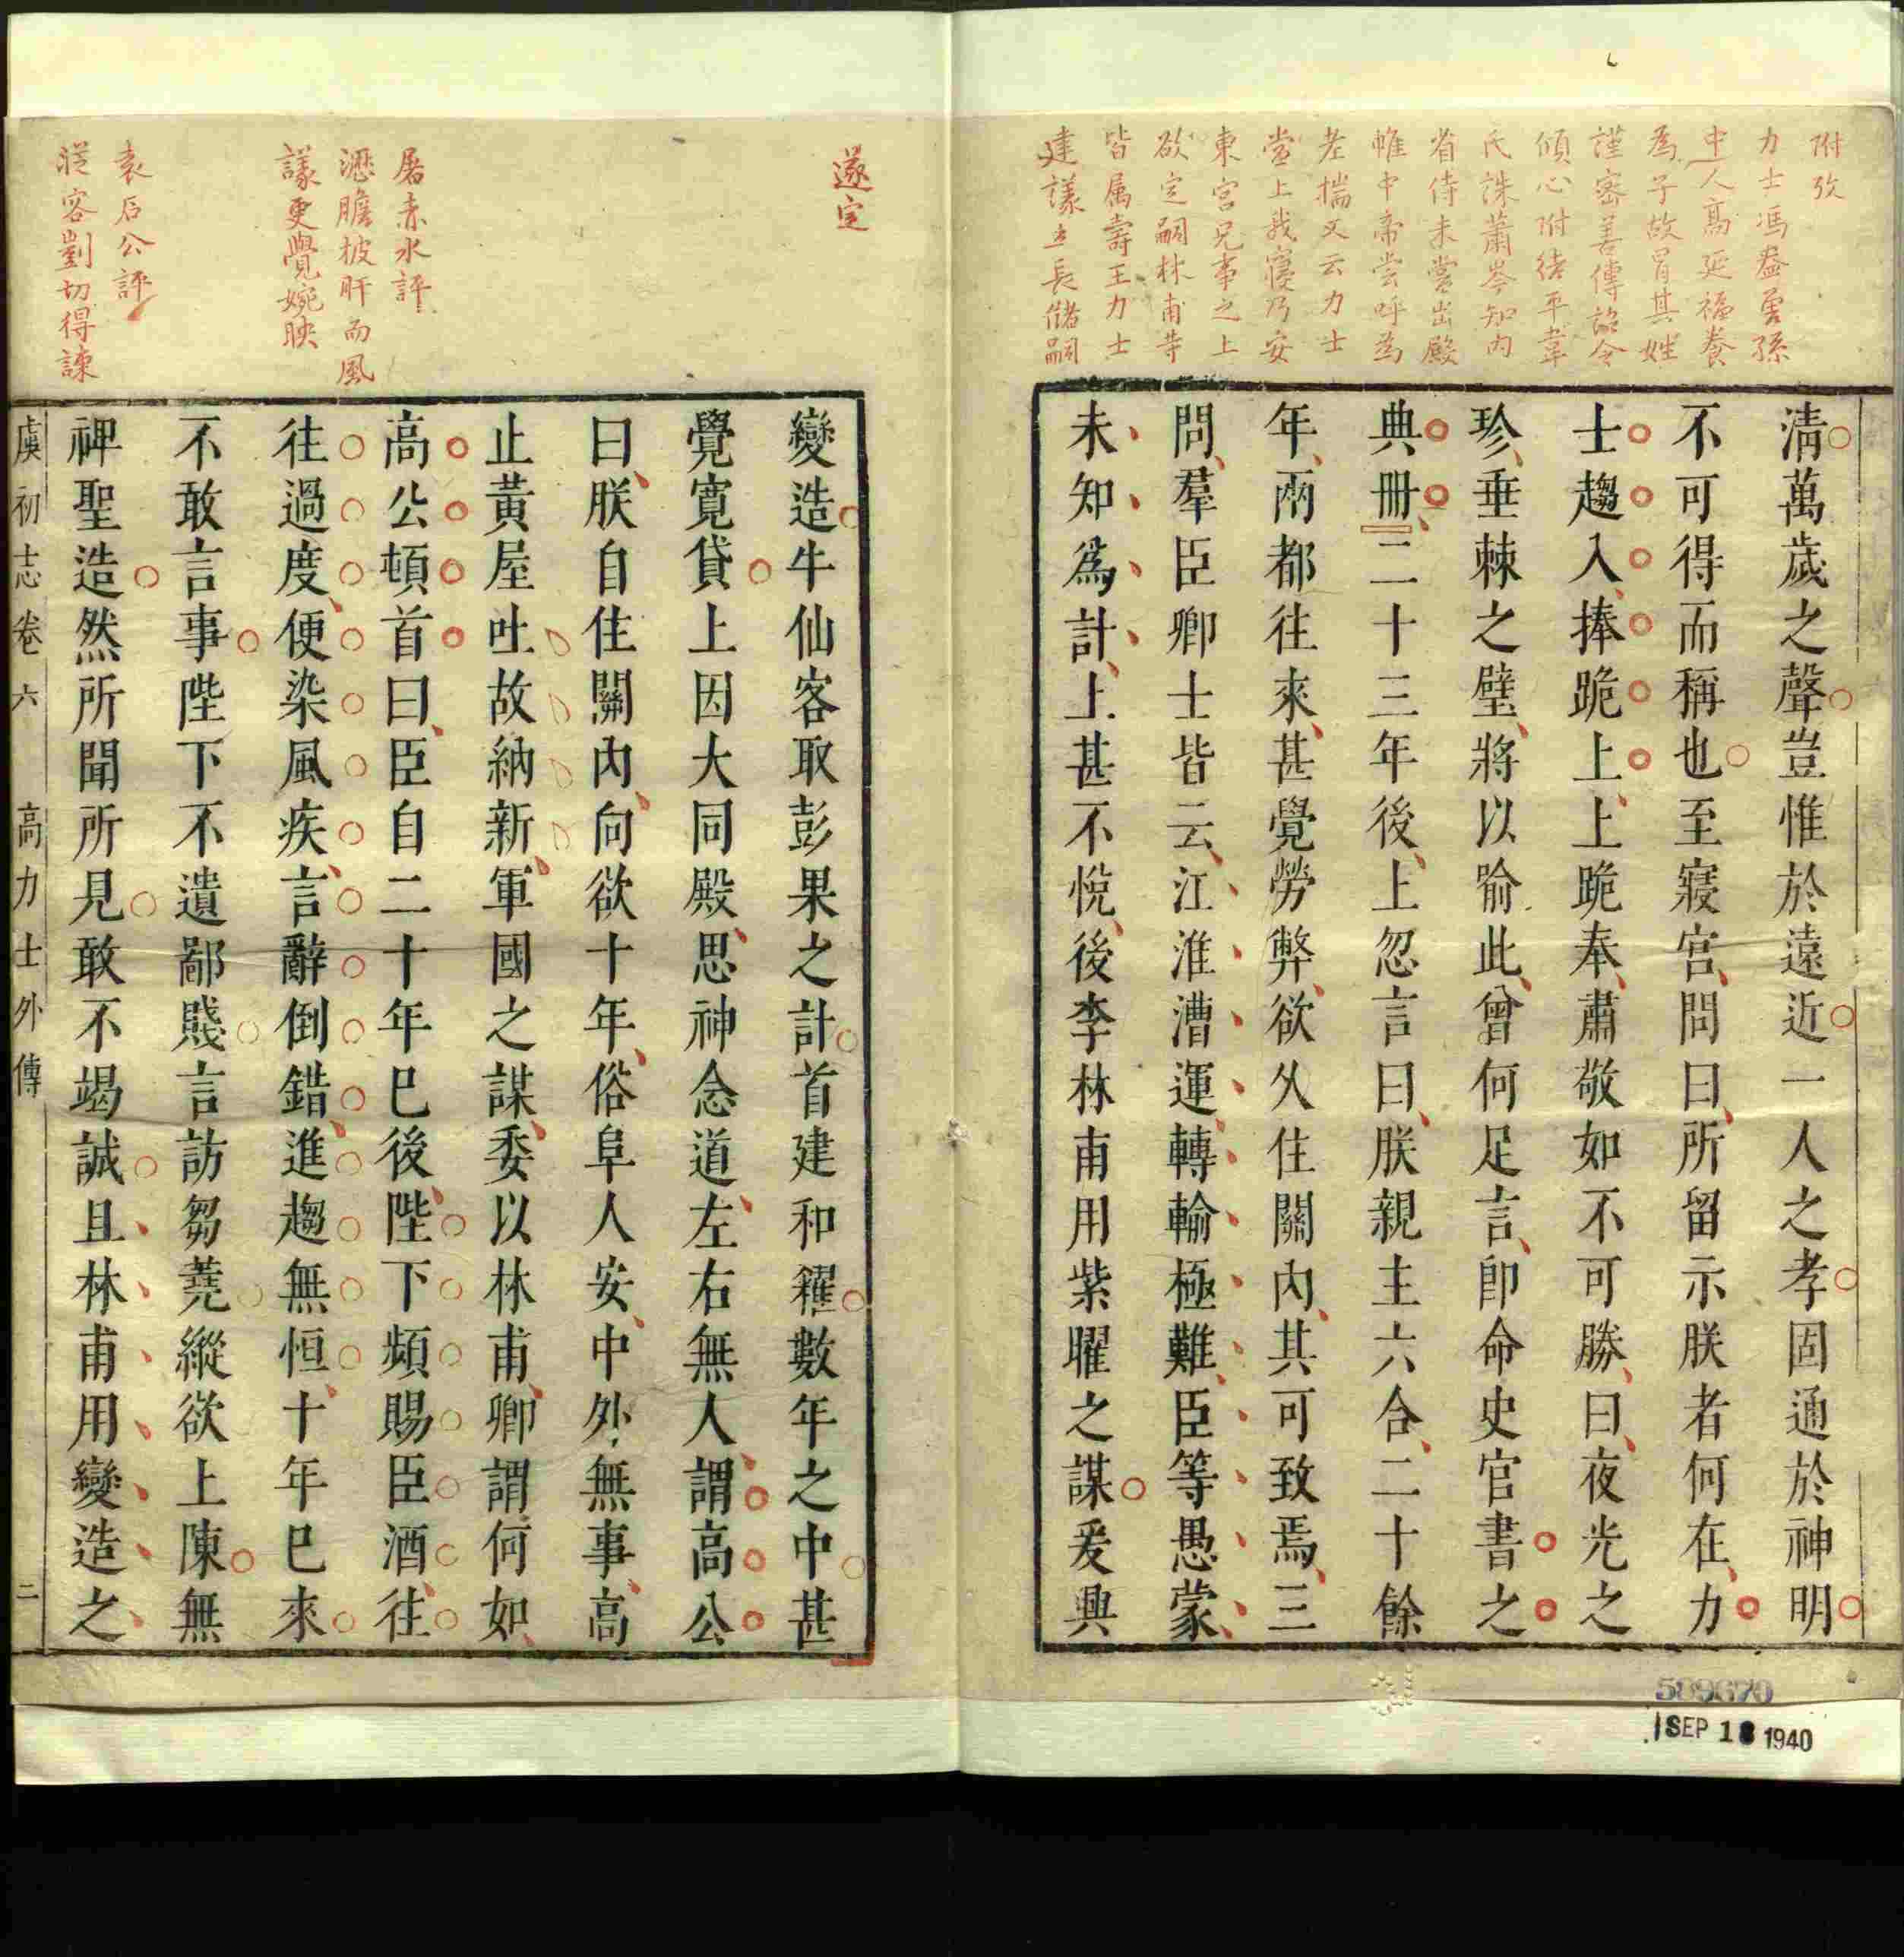 附攷
力士馮盎曾孫
中人高延福養
為子故冐其姓
謹密善傳詔令
傾心附結平韋
氏誅蕭岑知内
省侍未嘗出殿
帷中帝嘗呼為
老揣又云力士
當上我寢乃安
東宮兄事之上
欲定嗣林甫等
皆属壽王力士
建議立長儲嗣
清萬歲之聲豈惟於遠近一人之孝固通於神明
不可得而稱也至寢宫問曰所留示朕者何在力
士趨入捧跪上上跪奉肅敬如不可勝曰夜光之
珍垂棘之璧將以喻此曾何足言即命史官書之
典冊二十三年後上忽言曰朕親主六合二十餘
年兩都往來甚覺勞弊欲久住關内其可致焉三
問羣臣卿士皆云江淮漕運轉輸極難臣等愚蒙
未知爲計上甚不悅後李林甫用紫曜之謀爰興
遂定
屠赤水評
瀝膽披肝而風
議更覺婉映
袁石公評
從容剴切得諫
變造牛仙客取彭果之計首建和糴數年之中甚
覺寬貸上因大同殿思神念道左右無人謂高公
曰朕自住關内向欲十年俗阜人安中外無事高
止黄屋吐故納新軍國之謀委以林甫卿謂何如
高公頓首曰臣自二十年巳後陛下頻賜臣酒往
往過度便染風疾言辭倒錯進趨無恒十年巳來
不敢言事陛下不遺鄙賤言訪芻蕘縱欲上陳無
裨聖造然所聞所見敢不竭誠且林甫用變造之
虞初志卷六 高力士外傳 二
589670
SEP 18 1940